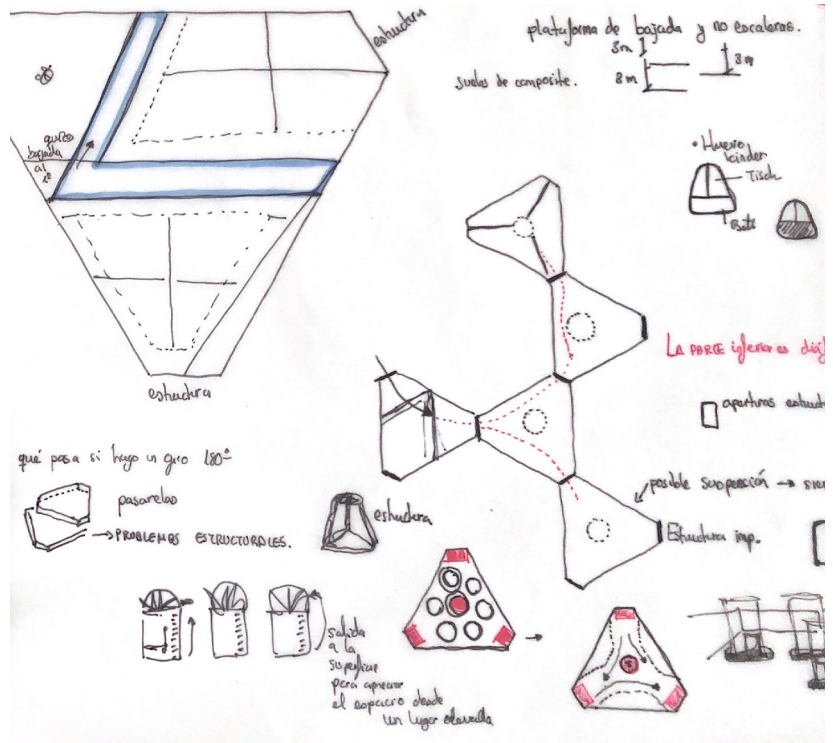 estructura
plataforma de bajada y no escaleras.
3m
8m
3m
suelos de composite.
quizo
bajada
al
1º
• Huevo
kinder
estructura
LA PARTE inferior es
aperturas
qué pasa si hago un giro 180º
pasarelas
→ PROBLEMAS ESTRUCTURALES.
estructura
posible suspensión →
Estructura imp.
salida
a la
superficie
para apreciar
el espacio desde
un lugar